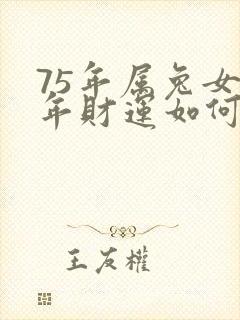 75年属兔女
年财运如何
王友權